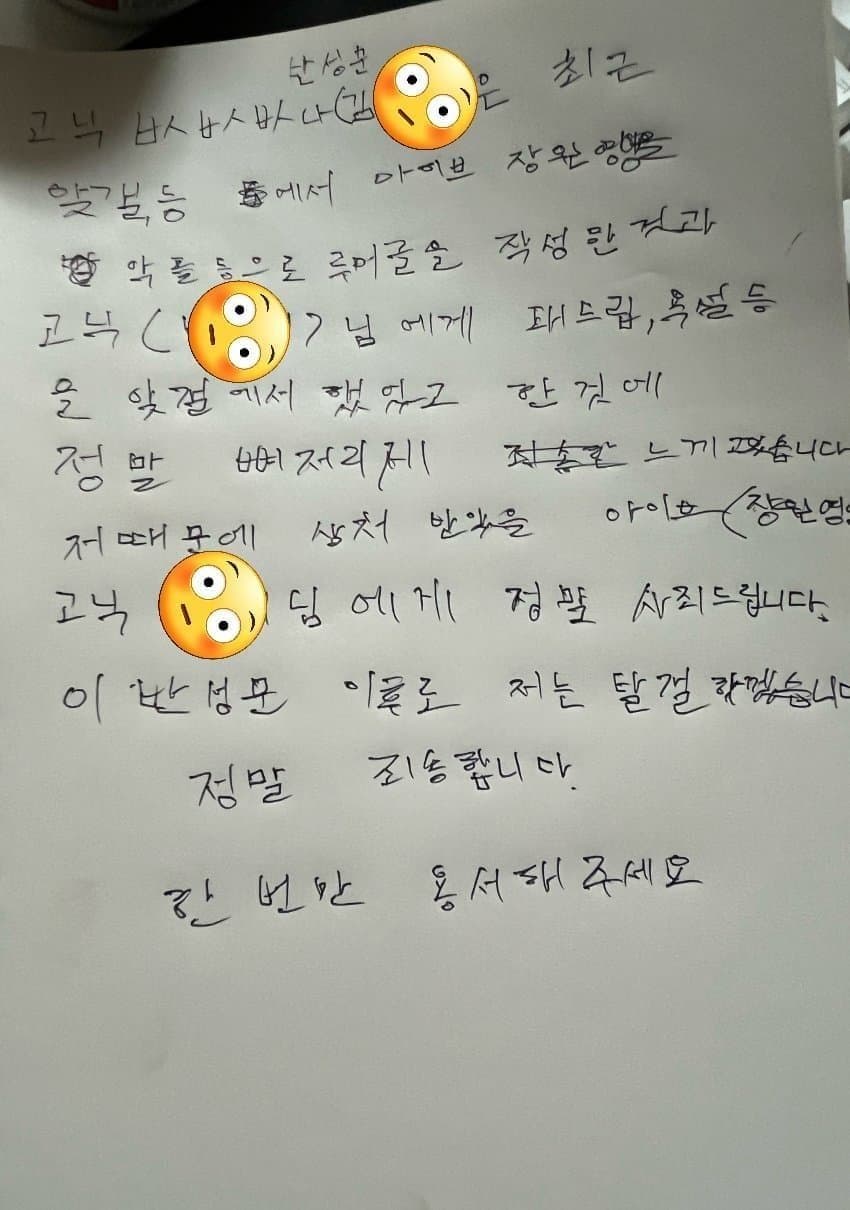 반성문
고닉 ㅂㅅㅂㅅ바나(김 은 최근
앚갤,등 에서 아이브 장원영을
악플등으로 루머글을 작성한것과
고닉 ( ) 님에게 패드립,욕설등
을 앚갤에서 했었고 한것에
정말 뼈저리제 느끼고있습니다
저때문에 상처 받았을 아이브(장원영
고닉 님에게 정말 사죄드립니다.
이 반성문 이후로 저는 탈갤하겠습니다
정말 죄송합니다.
한번만 용서해주세요